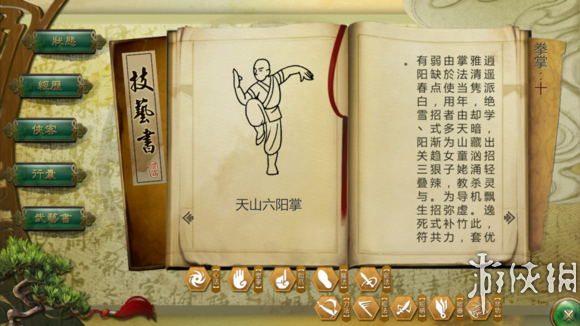 狀態
經歷
俠客
行囊
技藝書
技藝書
天山六阳掌
拳掌:十
逍遥派绝学,出招灵飘逸,优
雅清隽,却暗藏汹涌杀机。此套
掌法当年由天山童姥教导虚竹,
由於使用者多为女子,为弥补力
弱缺点,招式渐趋狠辣。招式共
有阳春白雪、阳关三叠与生死符
。
游侠网